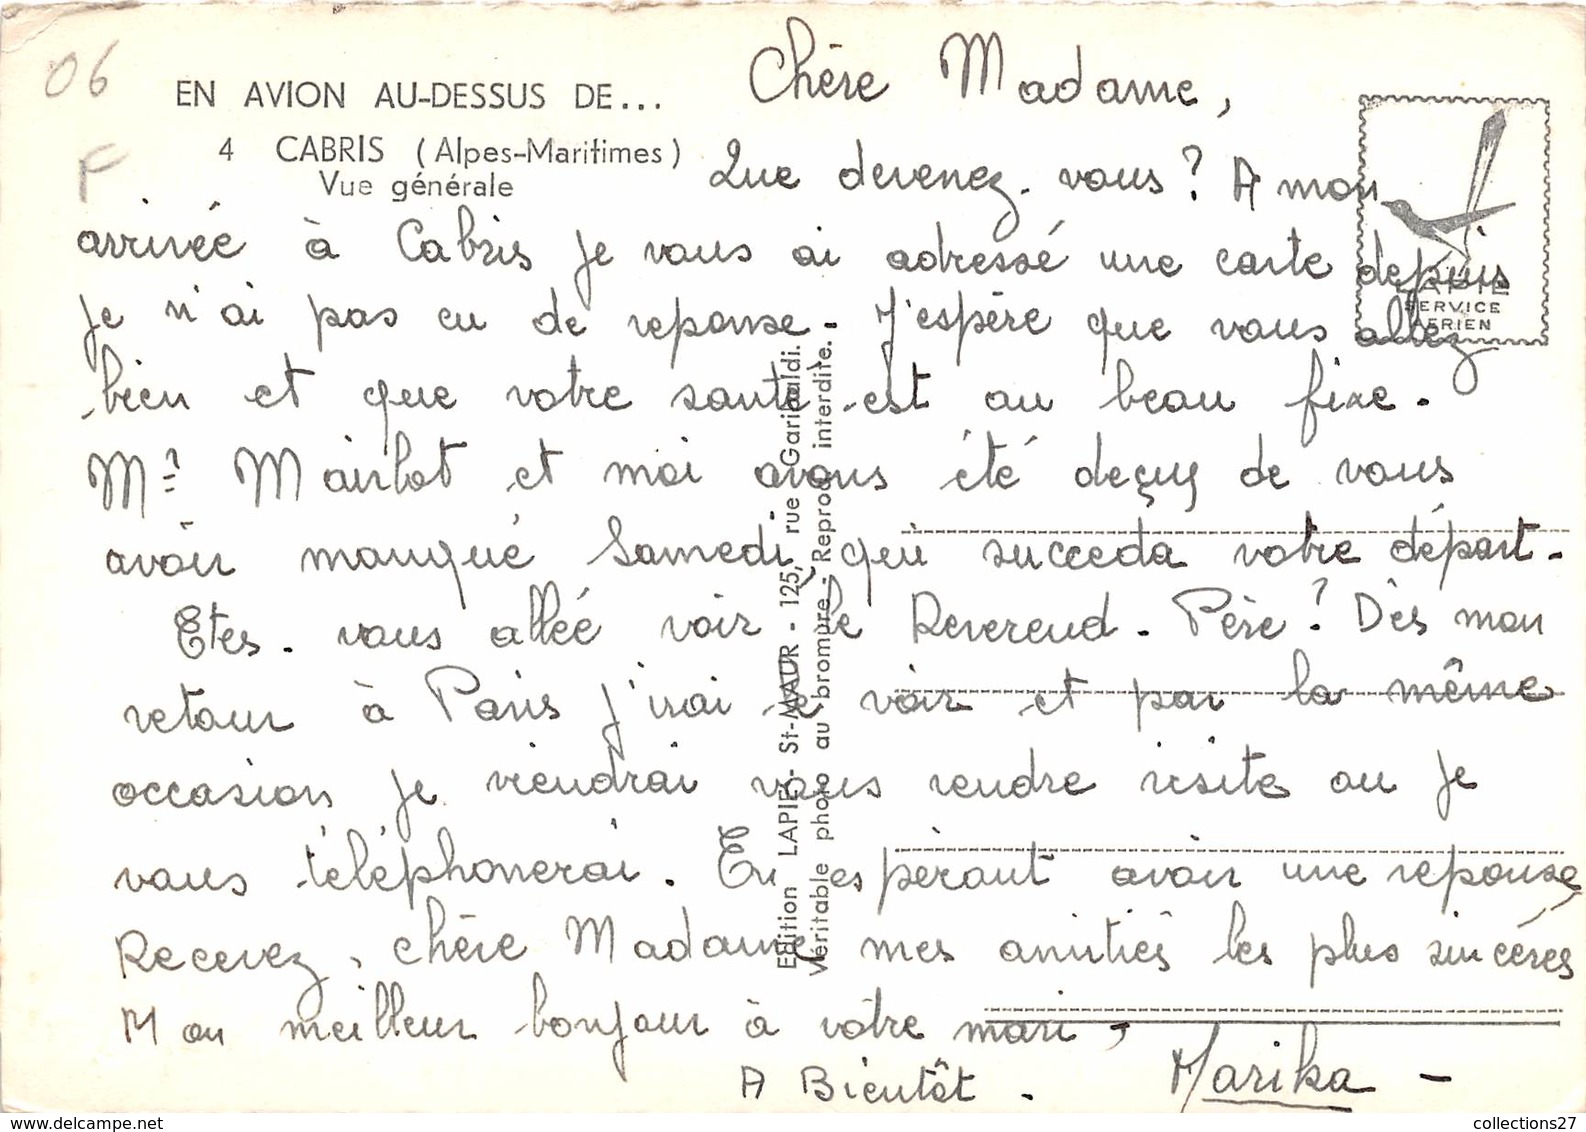 06
F
EN AVION AU-DESSUS DE...
4 CABRIS (Alpes-Maritimes)
Vue générale
LAPIE
SERVICE
AERIEN
Chère Madame,
Que devenez-vous? A mon
arrivée à Cabris je vous ai adressé une carte depuis
je n'ai pas eu de reponse. J'espère que vous allez
bien et que votre santé est au beau fixe.
et moi avons été deçus de vous
avoir manqué Samedi qui succeda votre départ.
Etes-vous allée voir le Reverend-Père? Dès mon
retour à Paris j'irai le voir et par la même
occasion je viendrai vous rendre visite ou je
vous téléphonerai. En espérant avoir une reponse,
Recevez, chère Madame mes amitiés les plus sincéres
Mon meilleur bonjour à vôtre mari,
A Bientôt. Marika -
Edition LAPIE - St-MAUR - 125, rue Garibaldi.
Véritable photo au bromure - Reprod. interdite.
collections27